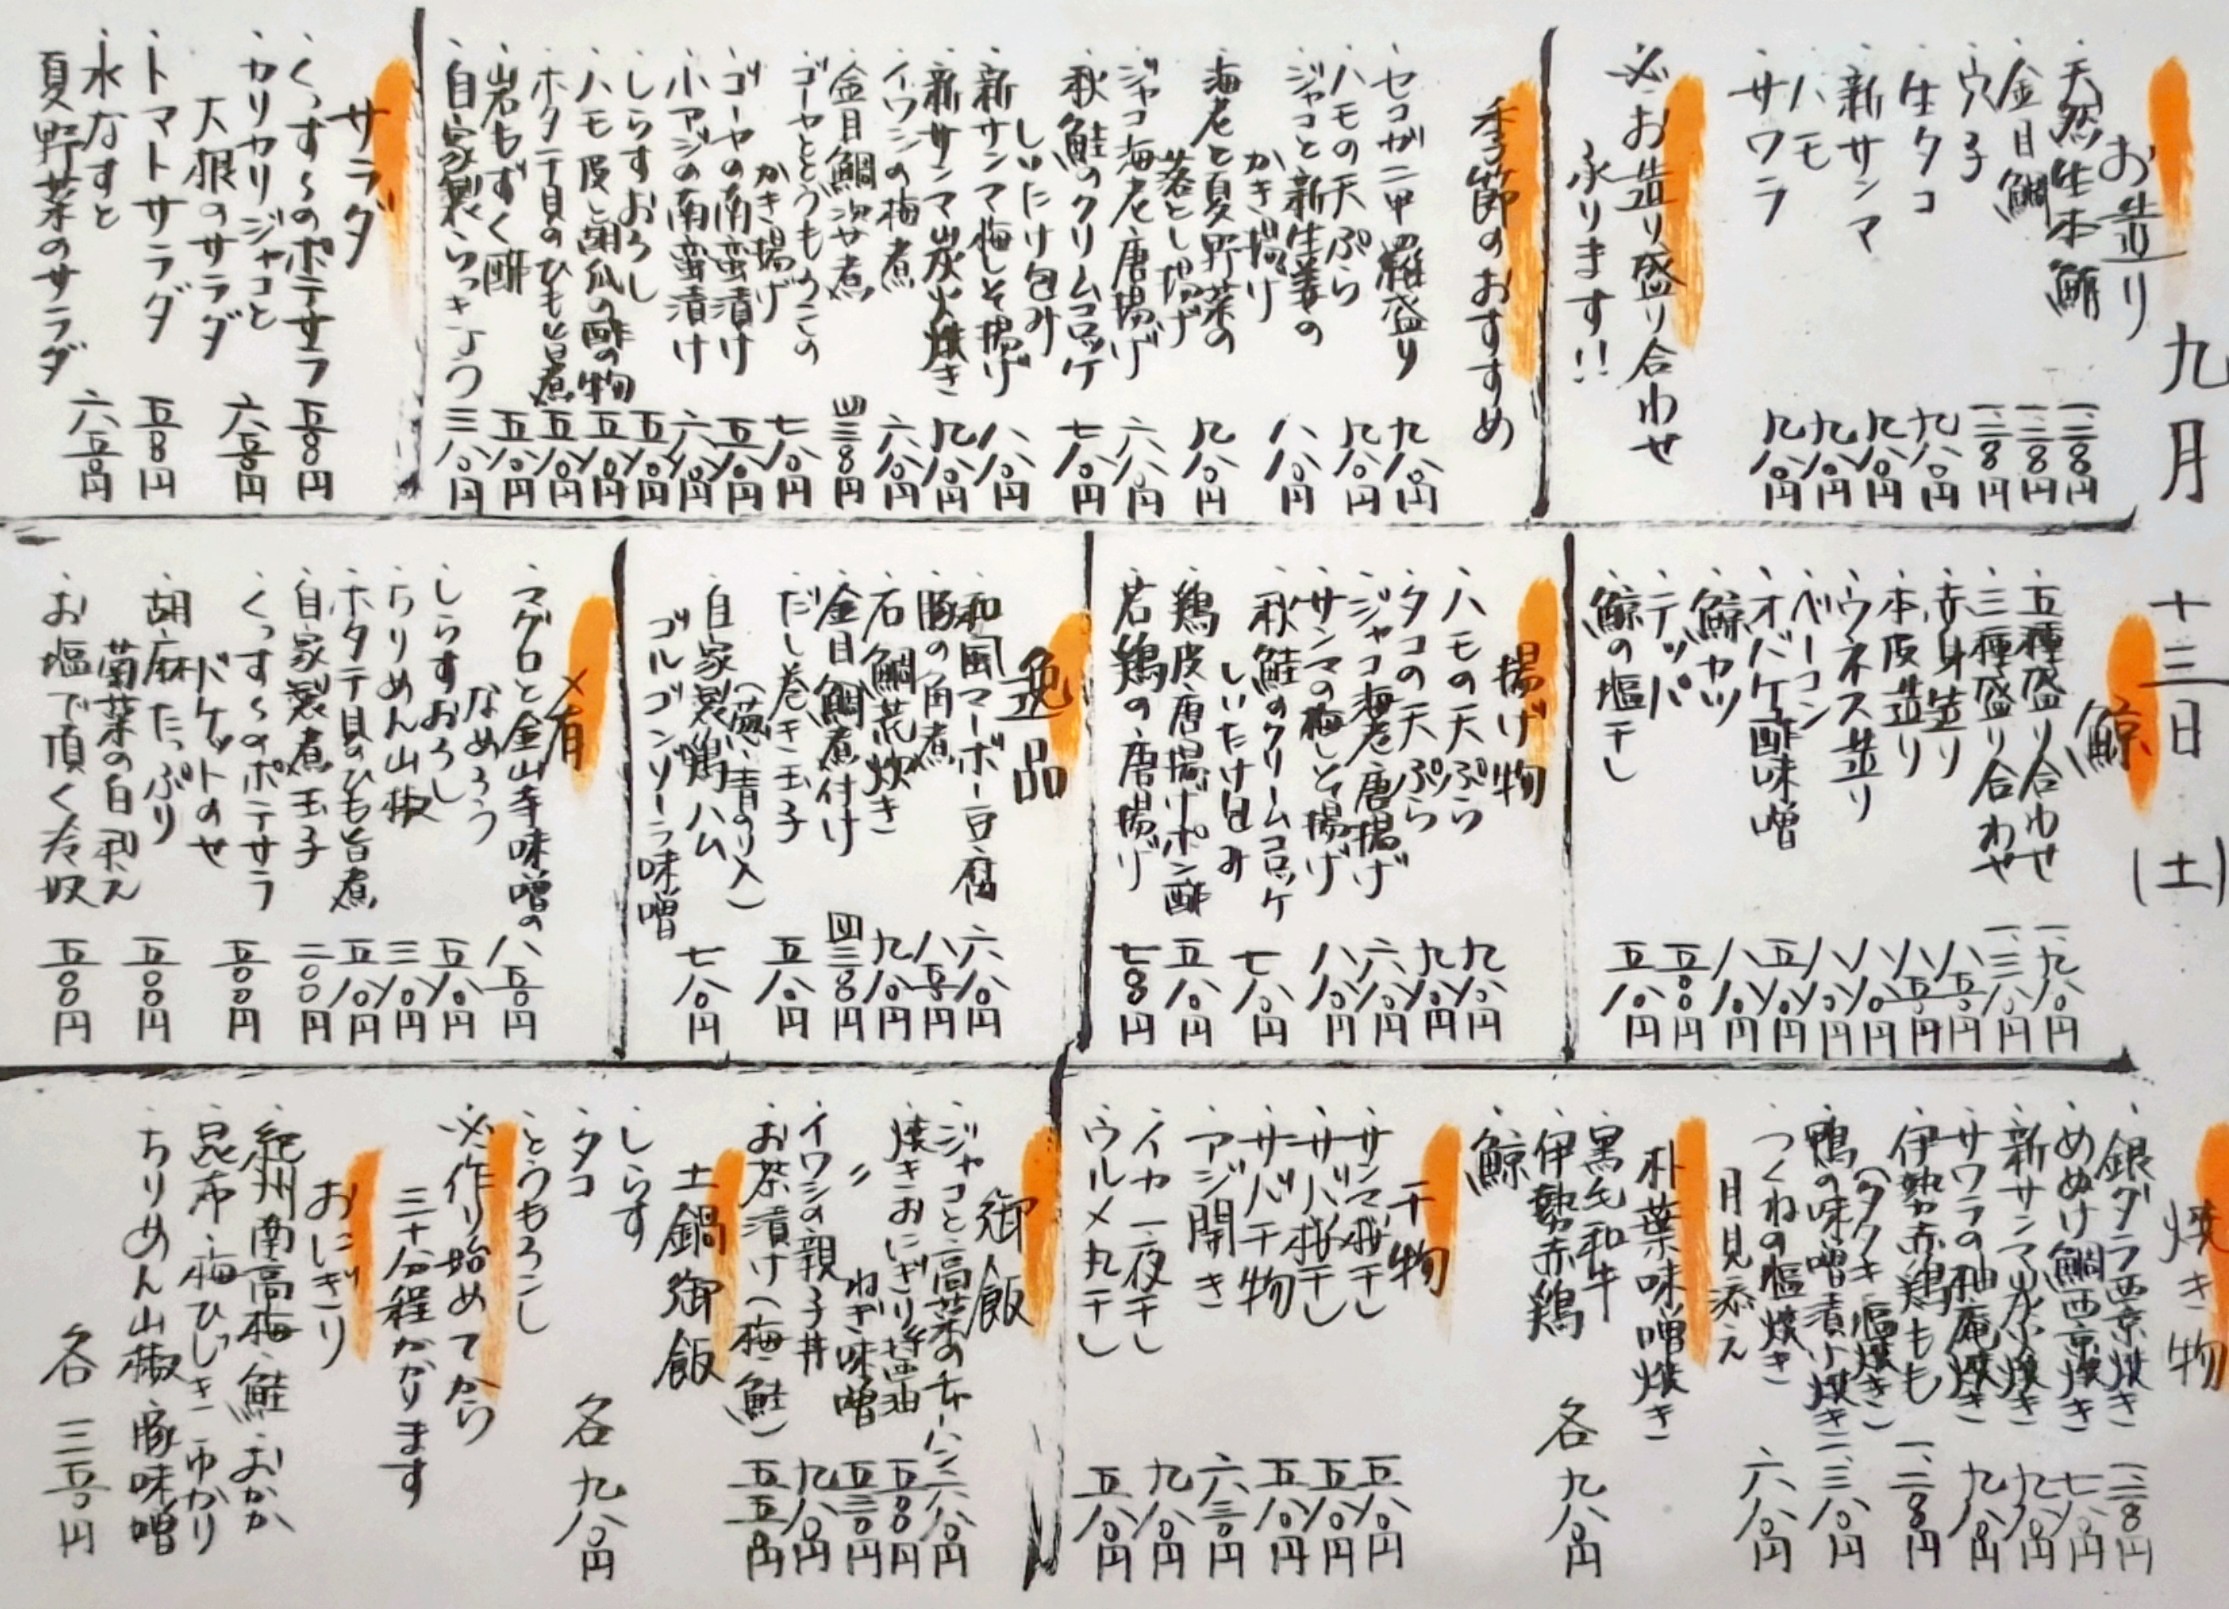 九月十三日(土)
お造り
・天然生本鮪 一、二八〇円
・金目鯛 一、二八〇円
・穴子 一、二八〇円
・生タコ 九八〇円
・新サンマ 九八〇円
・ハモ 九八〇円
・サワラ 九八〇円
※お造り盛り合わせ
承ります!!
季節のおすすめ
・セコガニ甲羅盛り 九八〇円
・ハモの天ぷら 九八〇円
・ジャコと新生姜の
かき揚げ 八八〇円
・海老と夏野菜の
落とし揚げ 九八〇円
・ジャコ海老唐揚げ 六八〇円
・秋鮭のクリームコロッケ
しいたけ包み 七八〇円
・新サンマ梅しそ揚げ 八八〇円
・新サンマ炭火焼き 九八〇円
・イワシの梅煮 六八〇円
・金目鯛炊き煮
・ゴーヤととうもろこしの
かき揚げ 七八〇円
・ゴーヤの南蛮漬け 五八〇円
・小アジの南蛮漬け 六八〇円
・しらすおろし 五八〇円
・ハモ皮と胡瓜の酢の物 五八〇円
・ホタテ貝のひも旨煮 五八〇円
・岩もずく酢 五八〇円
・自家製らっきょう 三八〇円
サラダ
・くっすぅのポテサラ 五〇〇円
・カリカリジャコと
大根のサラダ 六五〇円
・トマトサラダ
・水なすと
夏野菜のサラダ 六五〇円
鯨
・五種盛り合わせ 一、九八〇円
・三種盛り合わせ 一、三八〇円
・赤身造り 八五〇円
・本皮造り 八五〇円
・ウネス造り 八八〇円
・ベーコン 八八〇円
・オバケ酢味噌 五八〇円
・鯨カツ 八八〇円
・テッパ 五〇〇円
・鯨の塩干し 五八〇円
揚げ物
・ハモの天ぷら 九八〇円
・タコの天ぷら 九八〇円
・ジャコ海老唐揚げ 六八〇円
・サンマの梅しそ揚げ 八八〇円
・秋鮭のクリームコロッケ
しいたけ包み 七八〇円
・鶏皮唐揚げポン酢 五八〇円
・若鶏の唐揚げ
逸品
・和風マーボー豆腐 六八〇円
・豚の角煮 八五〇円
・石鯛荒炊き 九八〇円
・金目鯛煮付け
・だし巻き玉子 五八〇円
(葱・青のり入)
・自家製鶏ハム 七八〇円
ゴルゴンゾーラ味噌
〆有
・マグロと金山寺味噌の
なめろう 八五〇円
・しらすおろし 五八〇円
・ちりめん山椒 三八〇円
・ホタテ貝のひも旨煮 五八〇円
・自家製煮玉子 二〇〇円
・くっすぅのポテサラ
バケットのせ 五〇〇円
・胡麻たっぷり
菊菜の白和え 五〇〇円
・お塩で頂く冷奴 五〇〇円
焼き物
・銀ダラ西京焼き
・めぬけ鯛西京焼き 七八〇円
・新サンマ炭火焼き 九八〇円
・サワラの柚庵焼き 九八〇円
・伊勢赤鶏もも
(タタキ・塩焼き) 一、二八〇円
・鴨の味噌漬け焼き 一、三八〇円
・つくねの塩焼き
月見添え 六八〇円
朴葉味噌焼き
黒毛和牛
・伊勢赤鶏
・鯨
各九八〇円
干物
・サンマ桜干し 五八〇円
・サバ桜干し 五八〇円
・サバ干物 五八〇円
・アジ開き 六三〇円
・イカ一夜干し 九八〇円
・ウルメ丸干し 五八〇円
御飯
・ジャコと高菜のチャーハン 六八〇円
・焼きおにぎり醤油 五〇〇円
〃 ねぎ味噌 五三〇円
・イワシの親子丼 九八〇円
・お茶漬け(梅・鮭) 五五〇円
土鍋御飯
・しらす
・タコ
・とうもろこし
各九八〇円
※作り始めてから
三十分程かかります
おにぎり
・紀州南高梅・鮭・おかか
・昆布・梅ひじき・ゆかり
・ちりめん山椒・豚味噌
各三五〇円